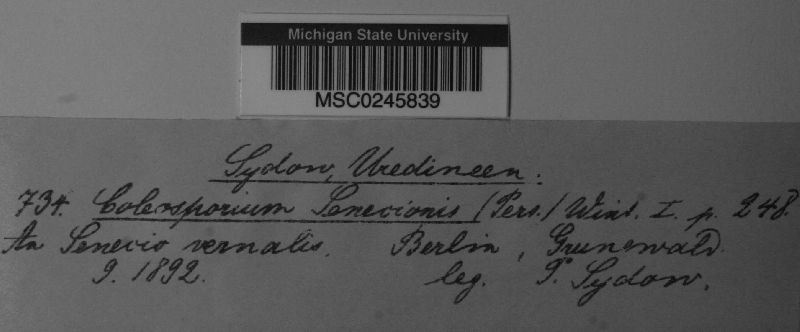 Michigan State University
MSC0245839
Sydow, Uredineen.
734. Coleosporium Senecionis (Pers.) Wint. I. p. 248.
An Senecio vernalis. Berlin, Grunewald.
9. 1892. leg. P. Sydow.